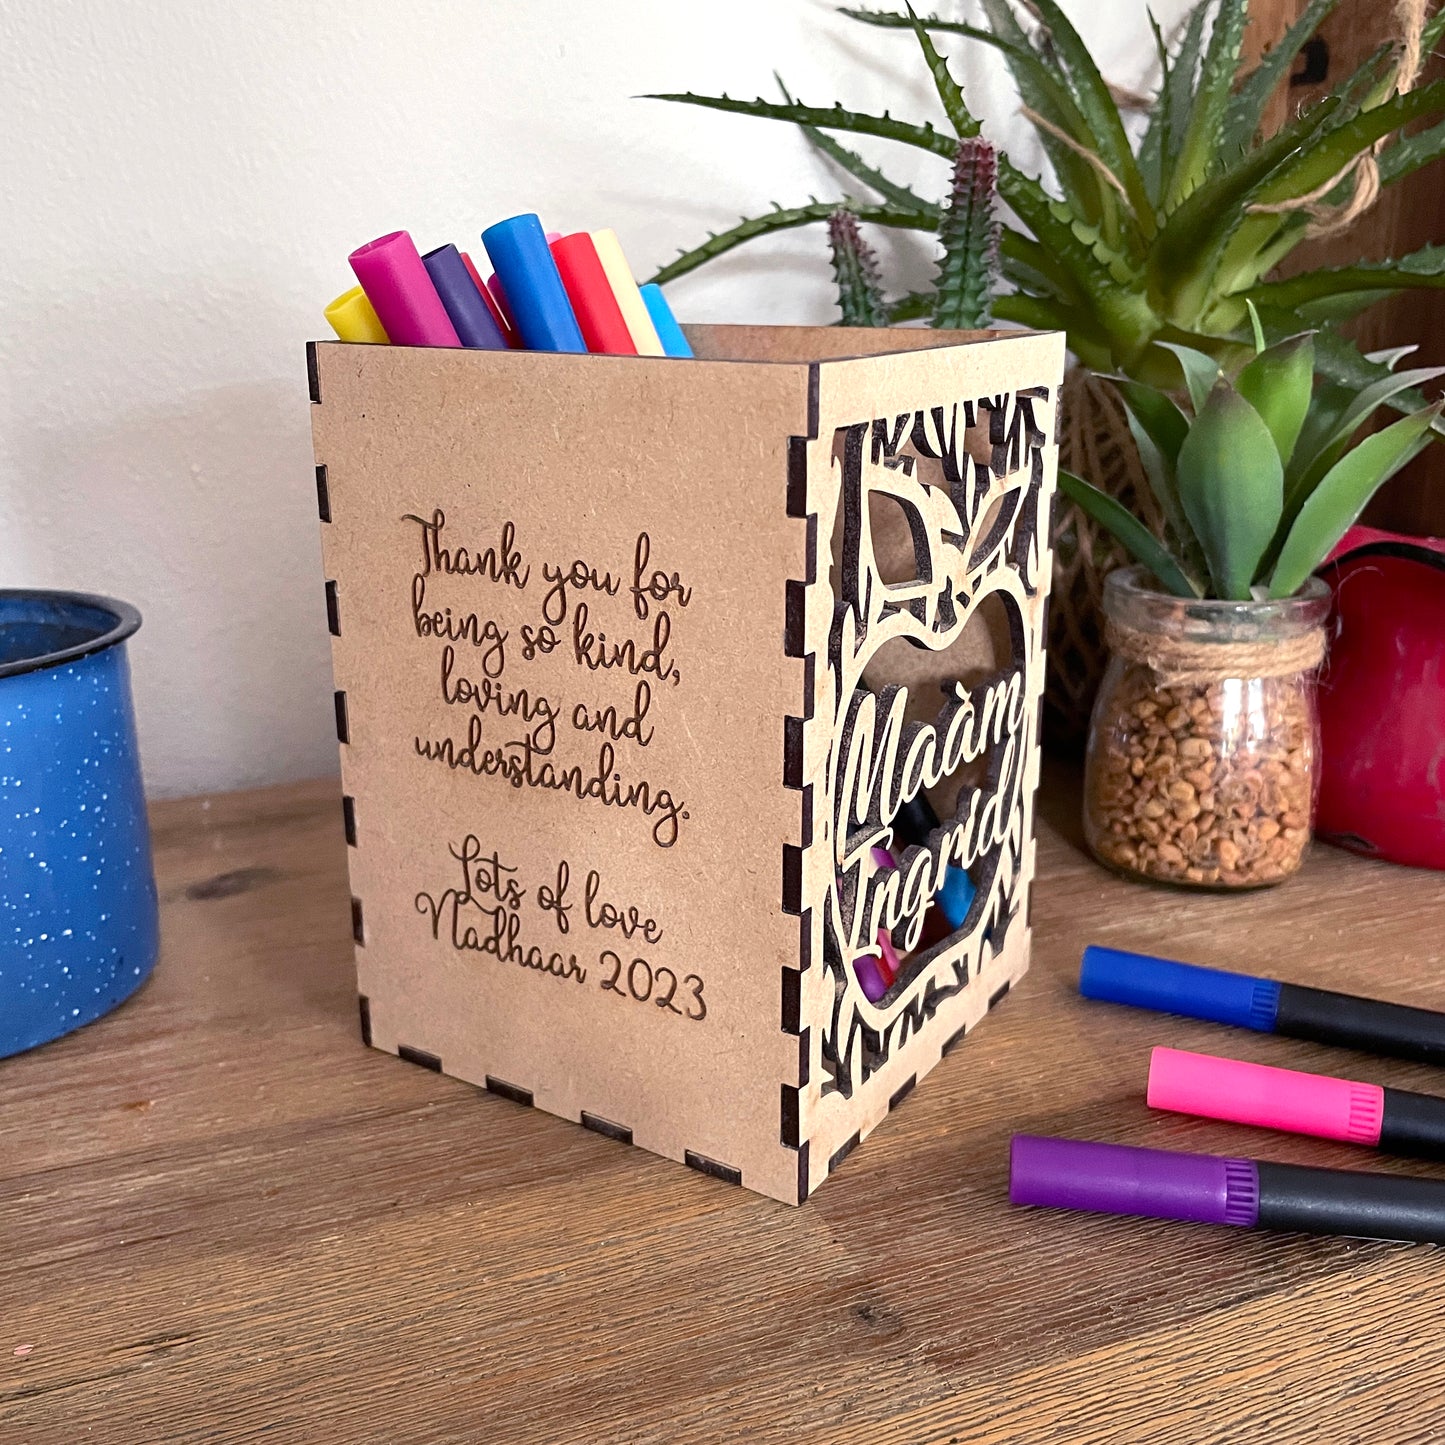 Thank you for
being so kind,
loving and
understanding.
Lots of love
Nadhaar 2023
Maàm
Ingrid